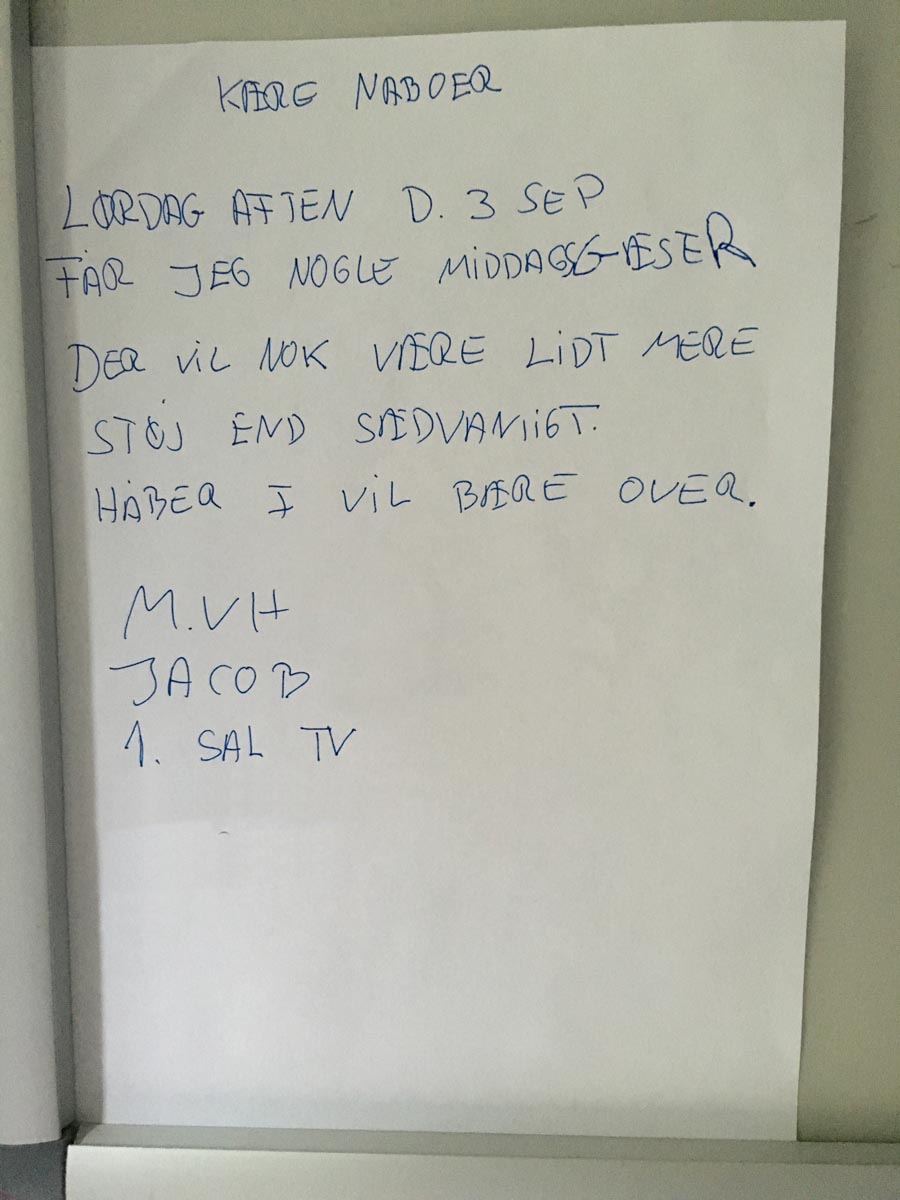 KÆRE NABOER
LØRDAG AFTEN D. 3 SEP
FÅR JEG NOGLE MIDDAGSGÆSER
DER VIL NOK VÆRE LIDT MERE
STØJ END SÆDVANliGT.
HÅBER I VIL BÆRE OVER.
M.VH
JACOB
1. SAL TV